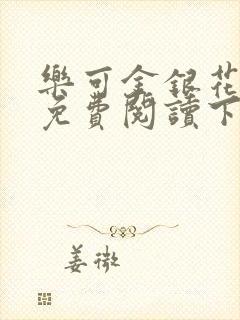 樂可金銀花
免費閱讀下
姜微